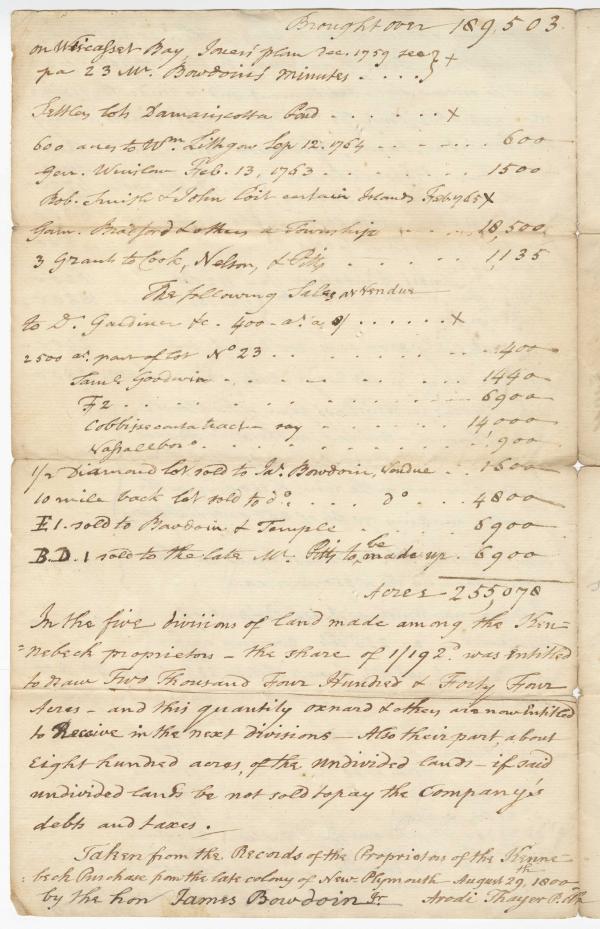 Brought over 189,503.
on Wiscasset Bay, Jones' plan Dec. 1759 see } +
pa 23 Mr. Bowdoin's minutes . . . . }
Settlers lots Damariscotta Pond . . . . . . x
600 acres to Wm. Lithgow Sep 12. 1764 . . . . . . 600
Gen. Winslow Feb. 13, 1763 . . . . . . 1500
Bob. Smith & John Coit certain Islands Feb 1765 x
Gam. Bradford & others a Township . . . . 18,500
3 Grants to Cook, Nelson, & Pitts . . . . . 1,135
The following Sales at Vendue
to Dr. Gardiner &c. 400 as. a 8/ . . . . . . x
2500 as. part of lot No 23 . . . . . . . . 400
Saml. Goodwin . . . . . . . 1440
F 2 . . . . . . . . . . 6900
Cobbiseconta tract say . . . . . . 14,000
Vassallboro. . . . . . . . . 1,900
1/2 Diamond lot sold to Jas. Bowdoin, Vendue . . 1600
10 mile back lot sold to do. . . . do . . . 4800
E 1. sold to Bowdoin & Temple . . . . . 6900
B. D. 1 sold to the late Mr. Pitts to be made up . 6900
Acres 255,078
In the five divisions of land made among the Ken=
=nebeck proprietors – the share of 1/192d. was entitled
to draw Two Thousand Four Hundred & Forty Four
Acres – and this quantity oxnard & others are now Entitled
to Receive in the next divisions – Also their part, about
Eight hundred acres, of the undivided lands – if said
undivided lands be not sold to pay the Company's
debts and taxes.
Taken from the Records of the Proprietors of the Kenne
:beck Purchase from the late colony of New Plymouth August 29th, 1800
by the hon James Bowdoin Jr. Arodi Thayer P. Clk